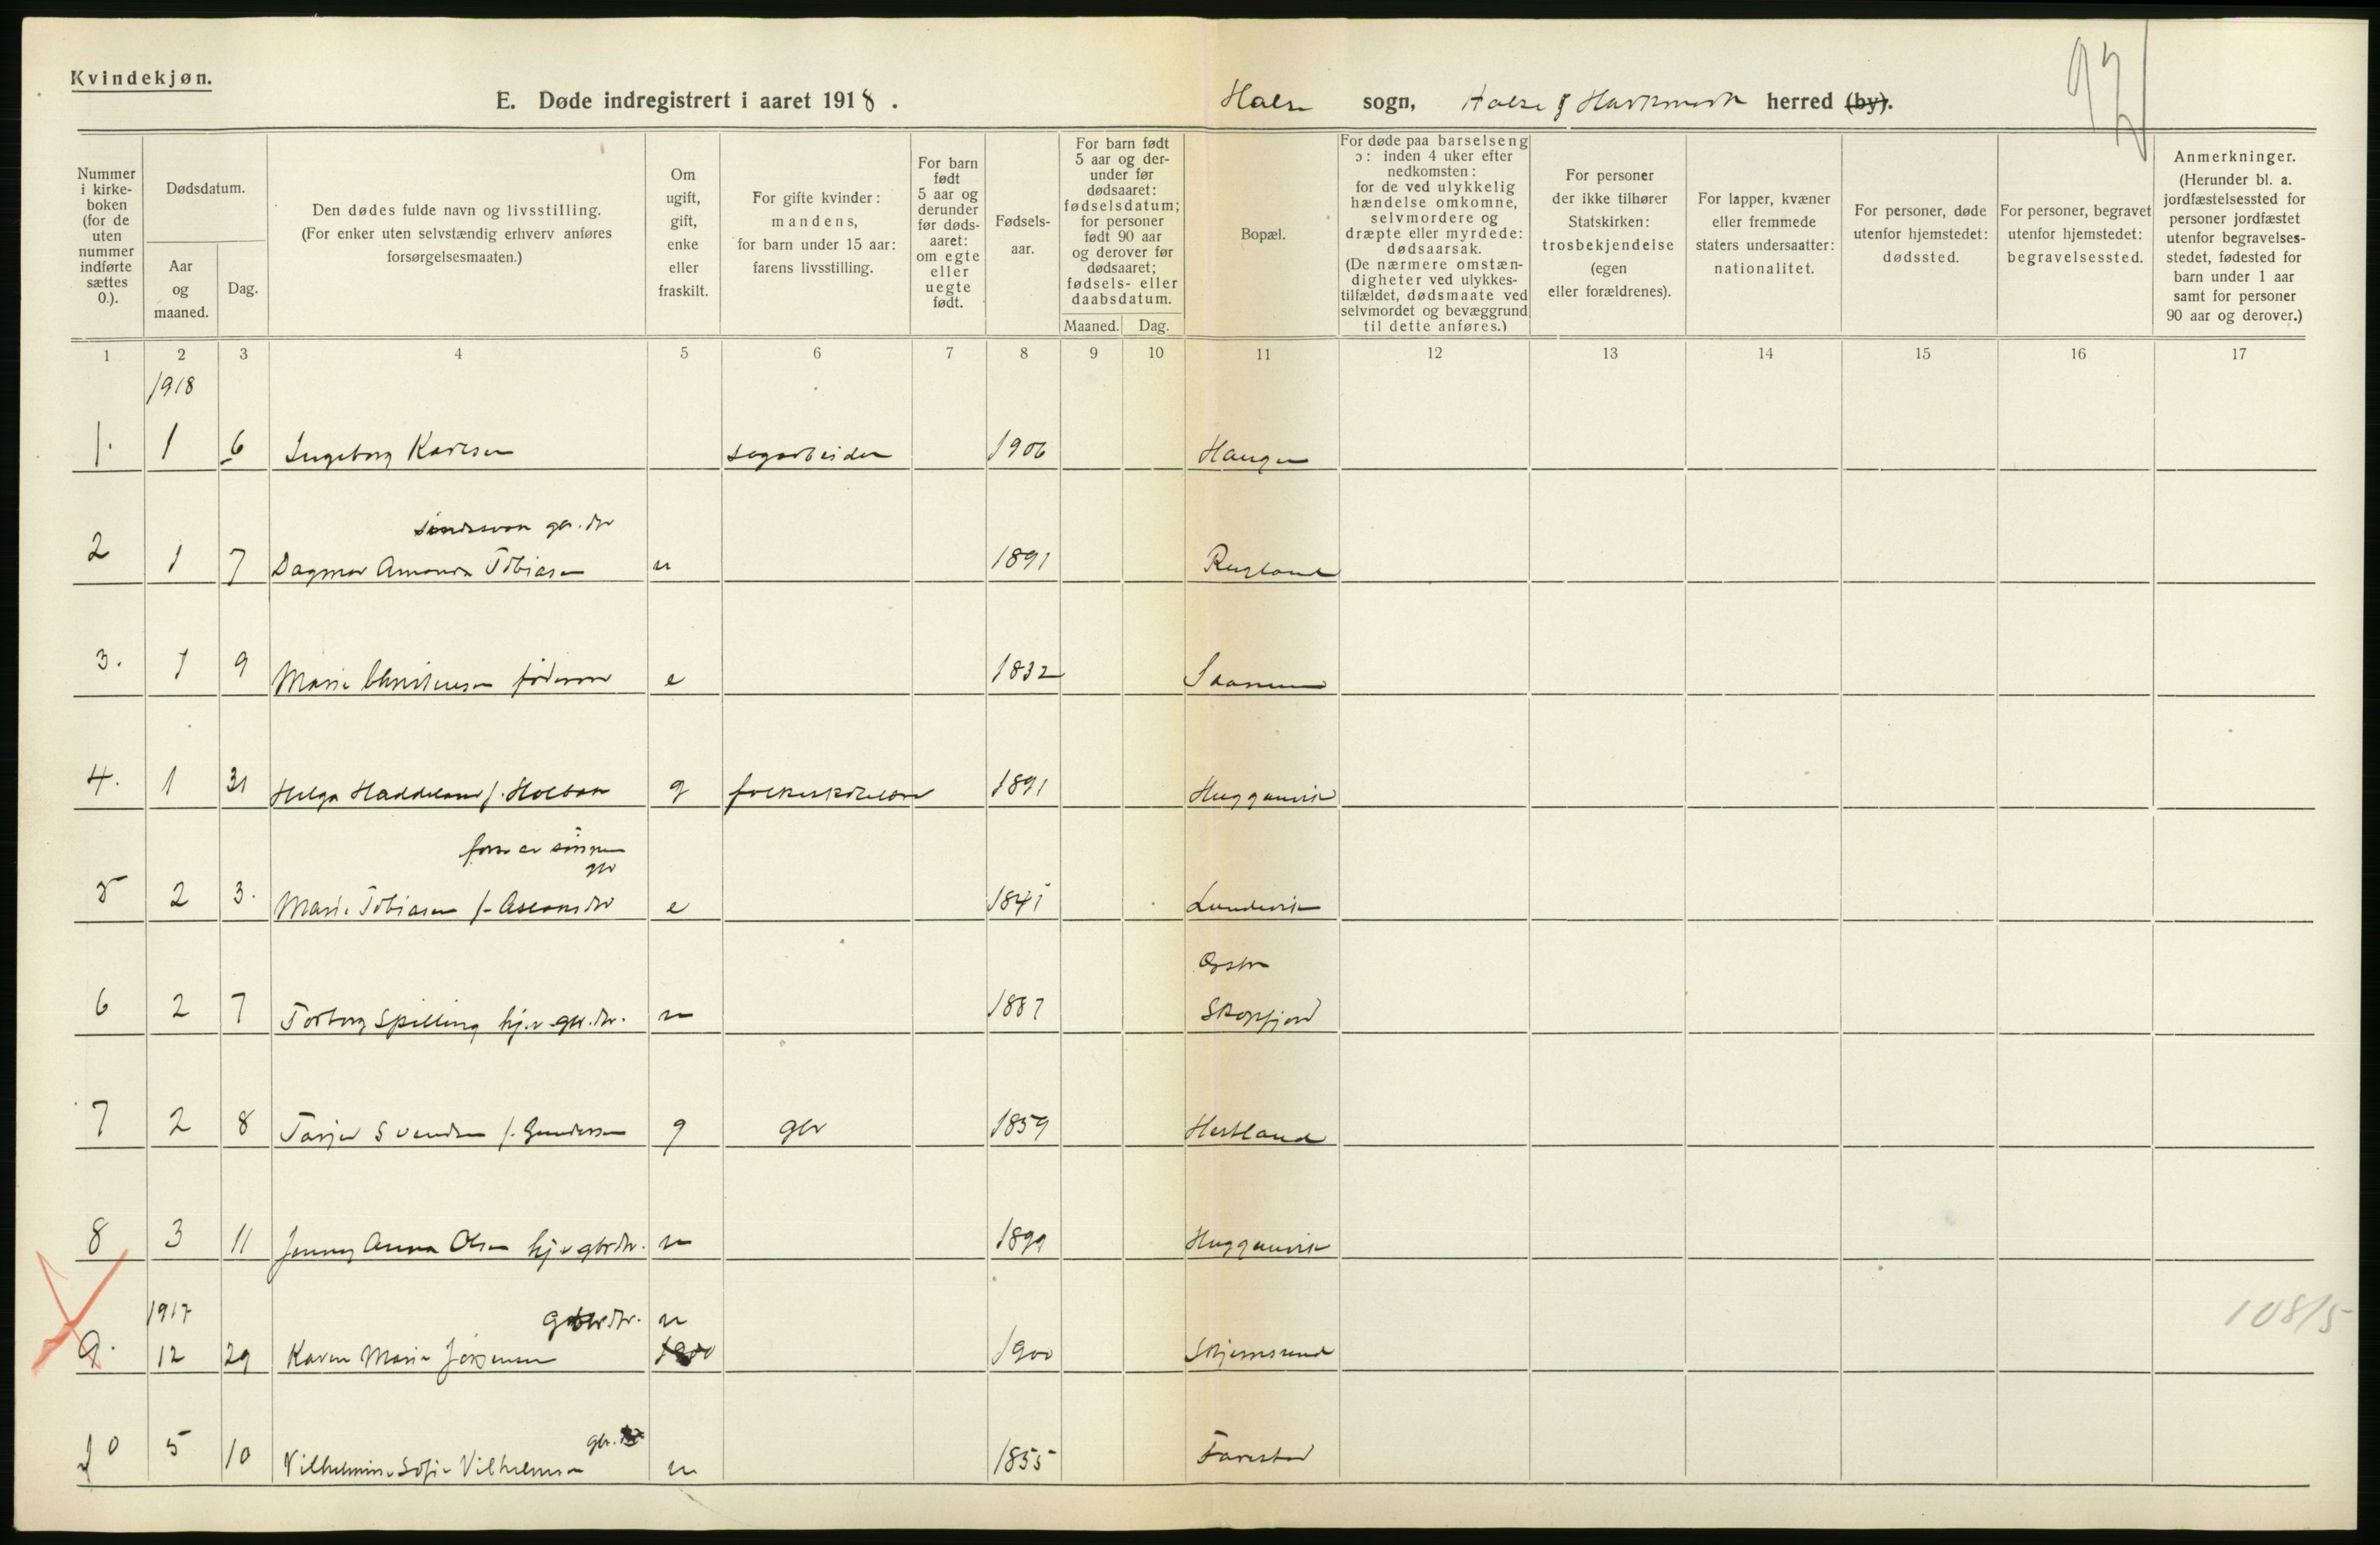 Kvindekjøn.
E. Døde indregistrert i aaret 1918. Halse sogn, Halse & Harkmark herred (by).
97
Nummer i kirke-boken (for de uten nummer indførte sættes 0.).
Dødsdatum.
Aar og maaned.
Dag.
Den dødes fulde navn og livsstilling. (For enker uten selvstændig erhverv anføres forsørgelsesmaaten.)
Om ugift, gift, enke eller fraskilt.
For gifte kvinder: mandens, for barn under 15 aar: farens livsstilling.
For barn født 5 aar og derunder før døds-aaret: om egte eller uegte født.
Fødsels-aar.
For barn født 5 aar og der-under før dødsaaret: fødselsdatum; for personer født 90 aar og derover før dødsaaret; fødsels- eller daabsdatum.
Maaned. Dag.
Bopæl.
For døde paa barselseng ɔ: inden 4 uker efter nedkomsten: for de ved ulykkelig hændelse omkomne, selvmordere og dræpte eller myrdede: dødsaarsak. (De nærmere omstæn-digheter ved ulykkes-tilfældet, dødsmaate ved selvmordet og bevæggrund til dette anføres.)
For personer der ikke tilhører Statskirken: trosbekjendelse (egen eller forældrenes).
For lapper, kvæner eller fremmede staters undersaatter: nationalitet.
For personer, døde utenfor hjemstedet: dødssted.
For personer, begravet utenfor hjemstedet: begravelsessted.
Anmerkninger. (Herunder bl. a. jordfæstelsessted for personer jordfæstet utenfor begravelses-stedet, fødested for barn under 1 aar samt for personer 90 aar og derover.)
1 2 3 4 5 6 7 8 9 10 11 12 13 14 15 16 17
1918
1. 1 6 Ingeborg Karlsen sagarbeider 1906 Haugen
gbr. dtr
2 1 7 Dagmar Amanda Tobiasen u 1891 Rugland
3. 1 9 Marie Christensen e 1832 Saanum
4. 1 31 Helga Haddeland f. Holbæk g folkeskolelærer 1891 Huggenvik
fors av sønnen
gbr
5 2 3. Marie Tobiasen f. Aslaksdtr e 1841 Lundevik
6 2 7 Torborg Spilling hj. v gbr. dtr. u 1887 Skogsfjord
7 2 8 Tarjer Svendsen f. Gundersen g gbr 1859 Hestland
8 3 11 Jenny Anna Olsen hj v gbr dtr. u 1899 Huggenvik
1917 gbr dtr. u
9. 12 29 Karen Marie Jørgensen 1900 1900 Skjernsund
108/5
gbr.
10 5 10 Vilhelmine Sofie Vilhelmsen u 1855 Farestad